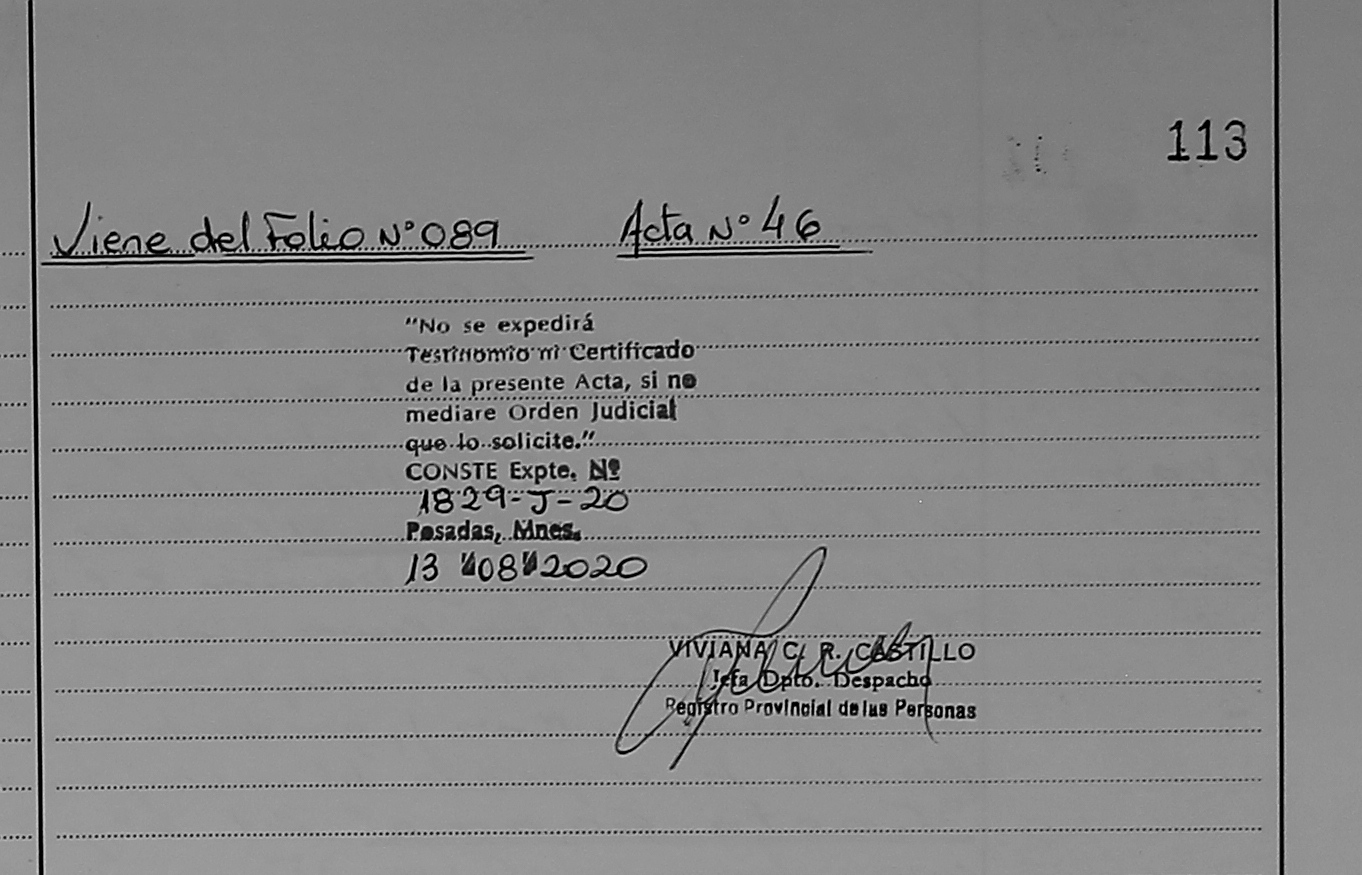 113
Viene del Folio N° 089 Acta N° 46
"No se expedirá
Testimonio ni Certificado
de la presente Acta, si no
mediare Orden Judicial
que lo solicite."
CONSTE Expte. Nº
1829-J-20
Posadas, Mnes.
13 "08" 2020
VIVIANA C. R. CASTILLO
Jefa Dpto. Despacho
Registro Provincial de las Personas